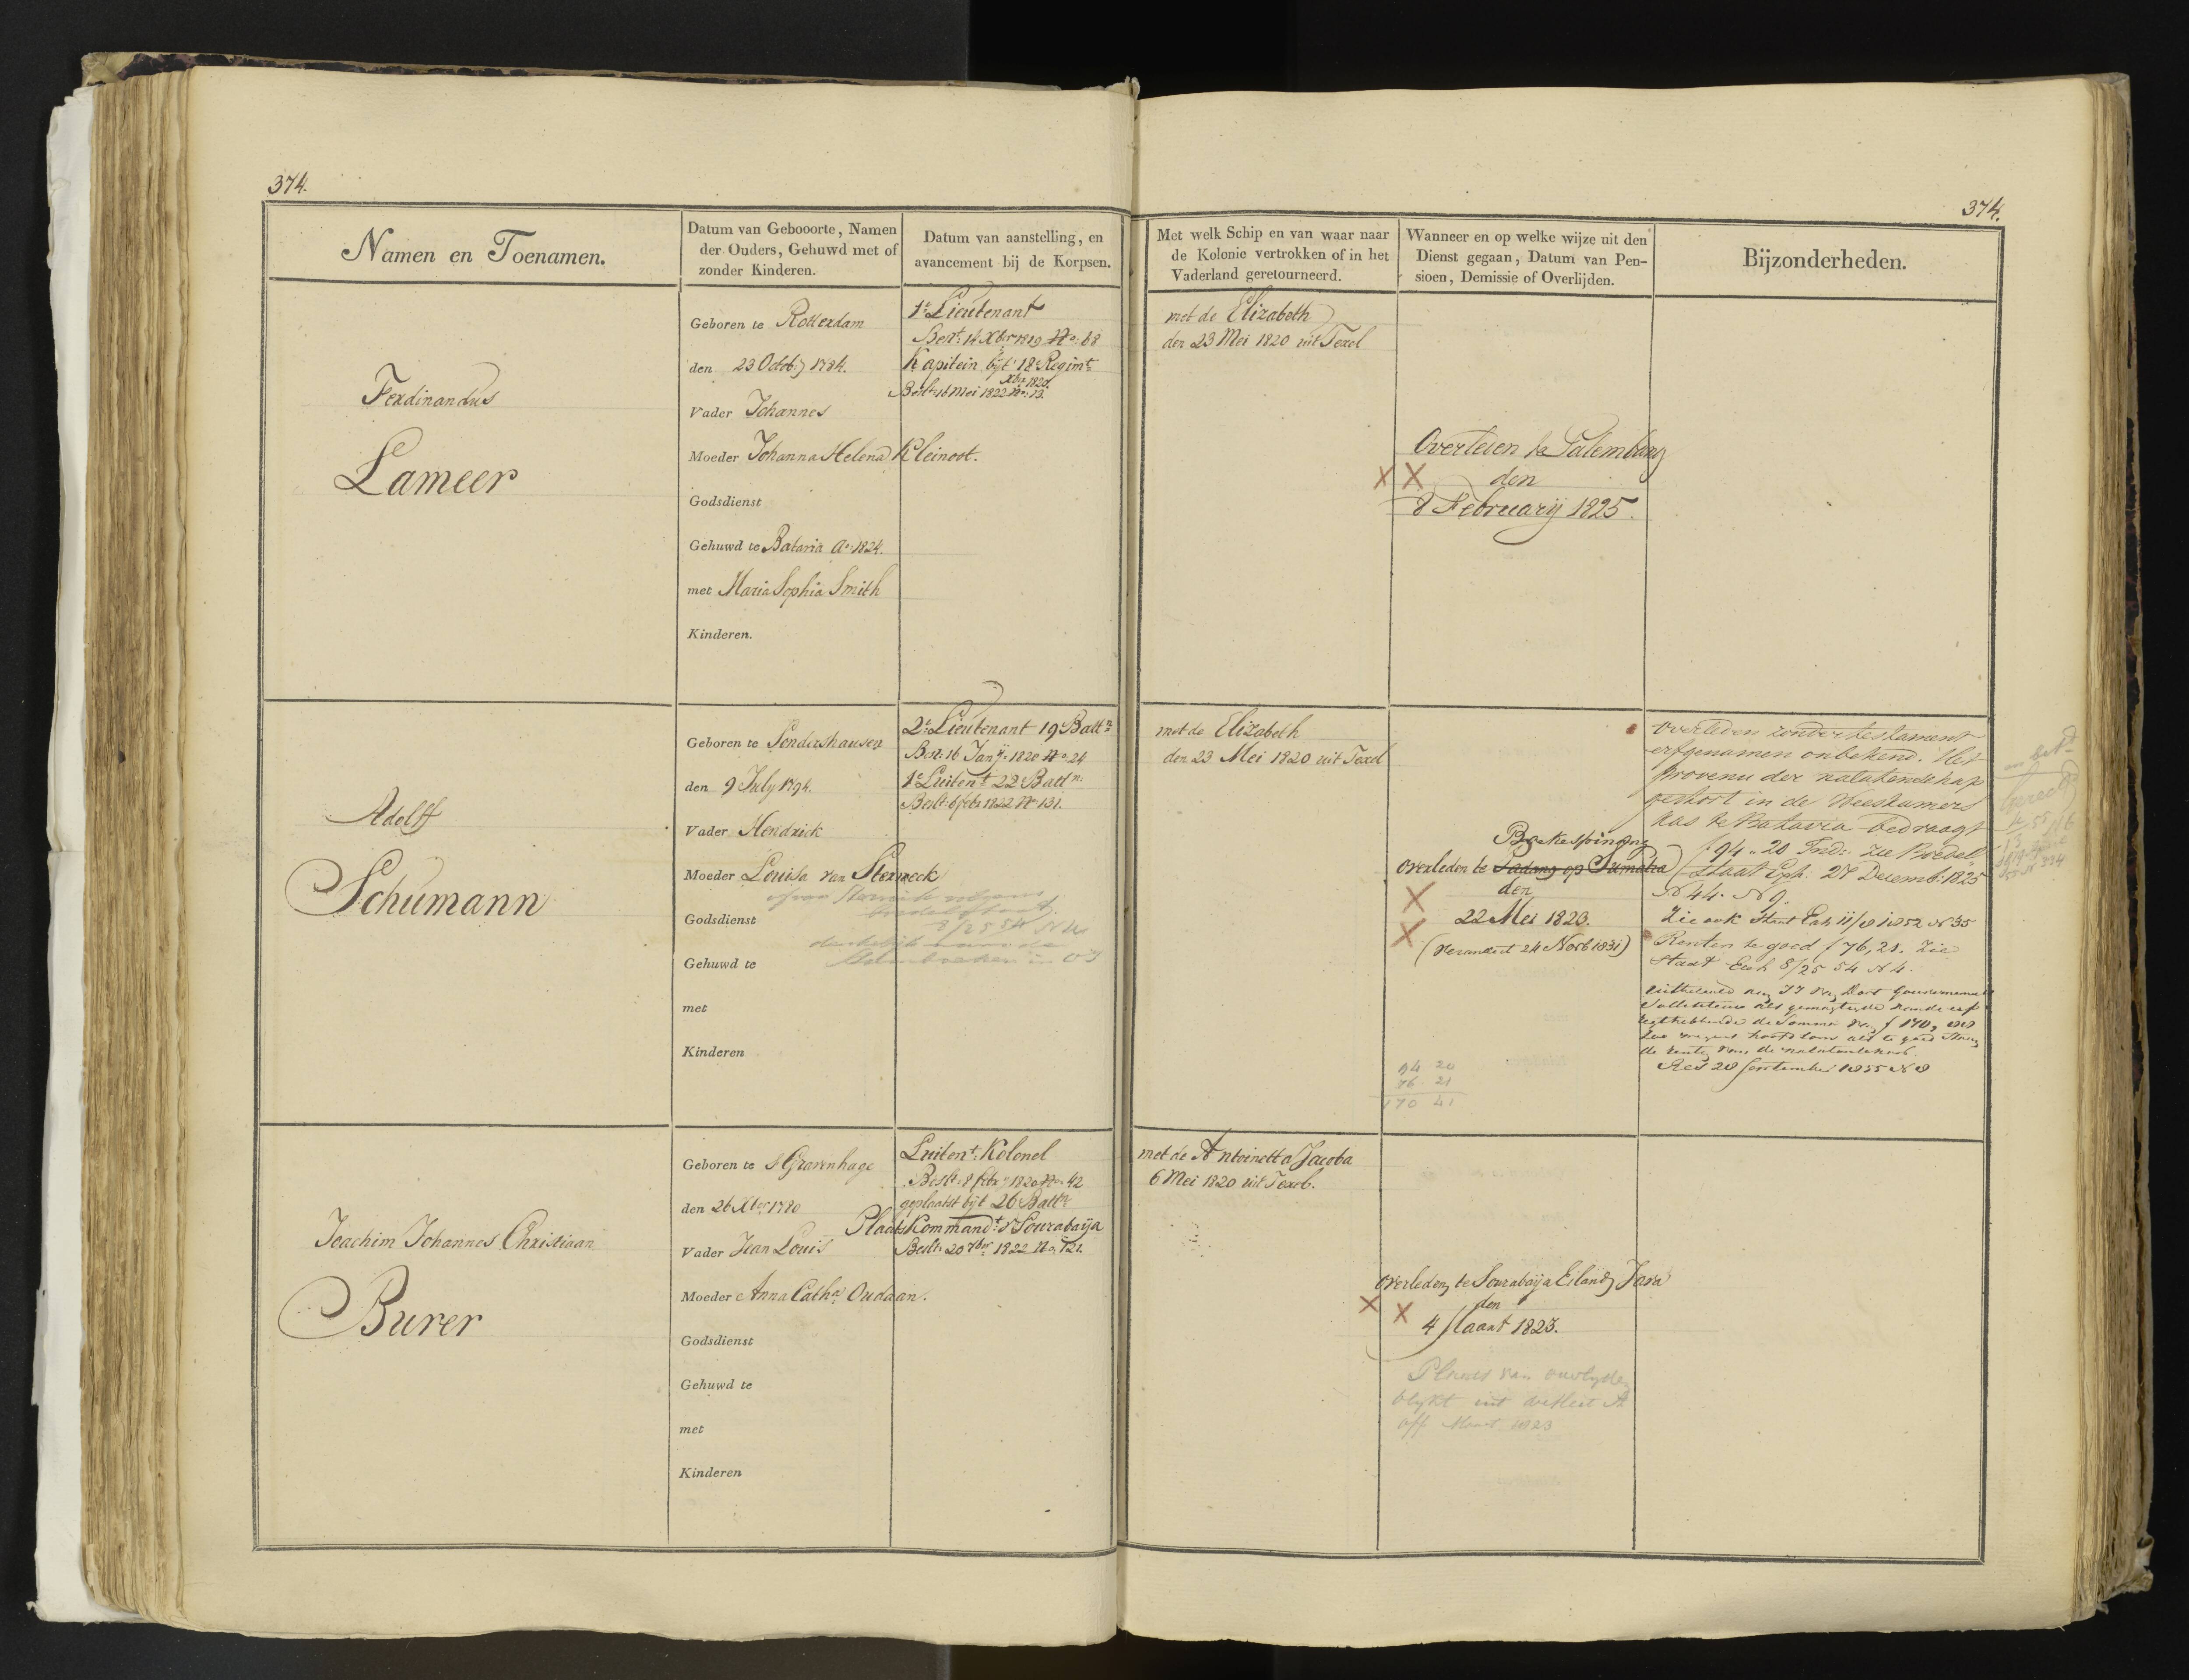 374.
374.
Namen en Toenamen.
Datum van Gebooorte, Namen
der Ouders, Gehuwd met of
zonder Kinderen.
Datum van aanstelling, en
avancement bij de Korpsen.
Met welk Schip en van waar naar
de Kolonie vertrokken of in het
Vaderland geretourneerd.
Wanneer en op welke wijze uit den
Dienst gegaan, Datum van Pen-
sioen, Demissie of Overlijden.
Bijzonderheden.
Ferdinandus
Lameer
Geboren te Rotterdam
den 23 Octob. 1784.
Vader Johannes
Moeder Johanna Helena Kleinoot.
Godsdienst
Gehuwd te Batavia Ao. 1824.
met Maria Sophia Smith
Kinderen.
1e Lieutenant
Beslt. 16 Xber 1819 No. 68
Kapitein bijt 18e Regimt
Xber 1820.
Beslt. 16 Mei 1822 No. 13.
met de Elizabeth
den 23 Mei 1820 uit Texel
Overleden te Palembang
X X den
8 Februarij 1825.
Adolff
Schumann
Geboren te Sondershausen
den 9 July 1794.
Vader Hendrick
Moeder Louisa van Sterneck
Godsdienst
8/25 54 N 4
Gehuwd te
met
Kinderen
2e Lieutenant 19 Battn
Beslt. 16 Janij. 1820 No. 24
1e Luitent 22 Battn.
Beslt. 6 febr 1822 No. 131.
met de Elizabeth
den 23 Mei 1820 uit Texel
overleden te Padang op Sumatra
X den
22 Mei 1823.
X (verandert 24 Novb 1831)
94 20
76 21
170 41
Overleden zonder testament
erfgenamen onbekend. Het
provenu der nalatenschap
gestort in de Weeskamers
kas te Batavia bedraagt
f 94 „ 20 Ind: zie Boedel
Staat Exh: 27 Decemb: 1825
N 44. N 9.
Zie ook Staat Exh 11/8 1852 N 35
Renten te goed f 76,21. Zie
Staat Exh 8/25 54 N 4.
Res 28 September 1855 N 8
Joachim Johannes Christiaan
Burer
Geboren te s Gravenhage
den 26 Xber 1780
Vader Jean Louis
Moeder Anna Catha Oudaan.
Godsdienst
Gehuwd te
met
Kinderen
Luitent. Kolonel
Beslt. 8 febr 1820 No. 42
geplaatst bijt 26 Battn
Plaats Kommandt. Sourabaija
Beslt. 20 7ber 1822 No. 121.
met de Antoinetta Jacoba
6 Mei 1820 uit Texel.
overleden te Sourabaija Eiland Java
X X den
4 Maart 1823.
Plaats van overlyden
blykt uit
off Maart 1823